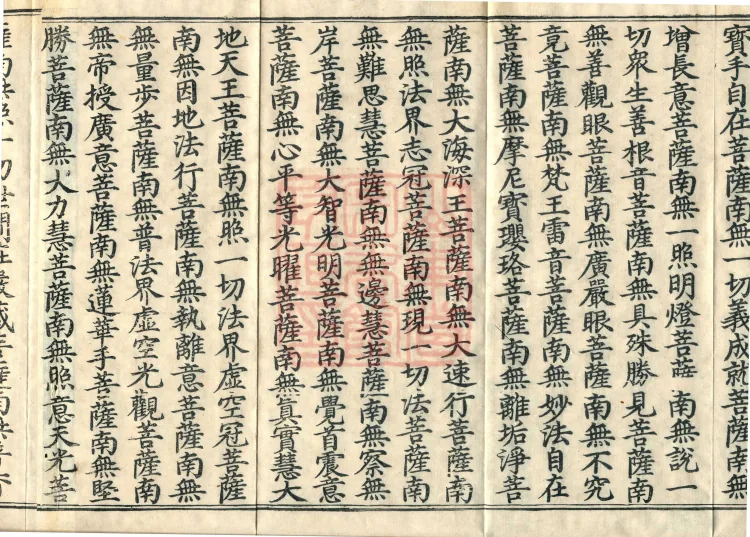 寶手自在菩薩南無一切義成就菩薩南無
增長意菩薩南無一照明燈菩薩南無說一
切衆生善根音菩薩南無具殊勝見菩薩南
無善觀眼菩薩南無廣嚴眼菩薩南無不究
竟菩薩南無梵王雷音菩薩南無妙法自在
菩薩南無摩尼寶瓔珞菩薩南無離垢諍菩
薩南無大海深王菩薩南無大速行菩薩南
無照法界志冠菩薩南無現一切法菩薩南
無難思慧菩薩南無無邊慧菩薩南無察無
岸菩薩南無大智光明菩薩南無覺首震意
菩薩南無心平等光曜菩薩南無真實慧大
地天王菩薩南無照一切法界虛空冠菩薩
南無因地法行菩薩南無執離意菩薩南無
無量步菩薩南無普法界虛空光觀菩薩南
無帝授廣意菩薩南無蓮華手菩薩南無堅
勝菩薩南無大力慧菩薩南無照意天光菩
薩南無照一切世間莊嚴藏菩薩南無